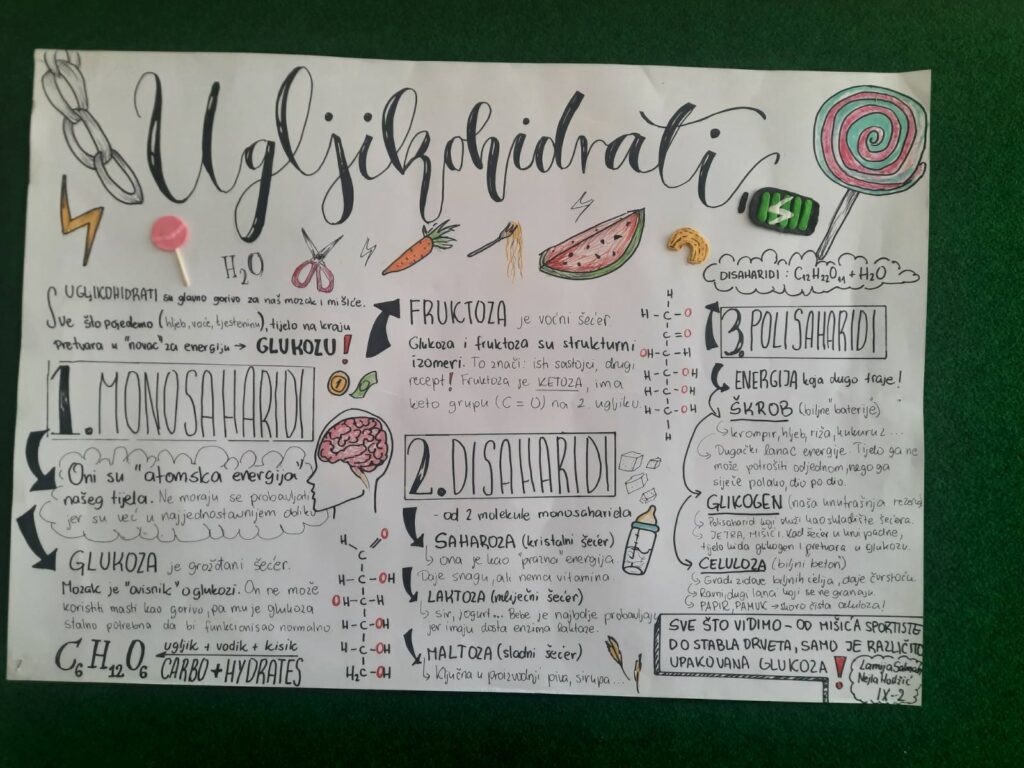 Ugljikohidrati
H₂O
DISAHARIDI : C₁₂H₂₂O₁₁ + H₂O
UGLJIKOHIDRATI su glavno gorivo za naš mozak i mišiće.
Sve što pojedemo (hljeb, voće, tjesteninu), tijelo na kraju
pretvara u "novac" za energiju → GLUKOZU!
1. MONOSAHARIDI
Oni su "atomska energija"
našeg tijela. Ne moraju se probavljati
jer su već u najjednostavnijem obliku
GLUKOZA je grožđani šećer.
Mozak je "ovisnik" o glukozi. On ne može
koristiti masti kao gorivo, pa mu je glukoza
stalno potrebna da bi funkcionisao normalno.
C₆H₁₂O₆
ugljik + vodik + kisik
CARBO + HYDRATES
H O
C
H - C - OH
OH - C - H
H - C - OH
H - C - OH
H₂C - OH
FRUKTOZA je voćni šećer
Glukoza i fruktoza su strukturni
izomeri. To znači: isti sastojci, drugi
recept! Fruktoza je KETOZA, ima
keto grupu (C = O) na 2. ugljiku.
H
H - C - O
C = O
OH - C - H
H - C - OH
H - C - OH
H - C - OH
H
2. DISAHARIDI
- od 2 molekule monosaharida
SAHAROZA (kristalni šećer)
ona je kao "prazna" energija.
Daje snagu, ali nema vitamina.
LAKTOZA (mliječni šećer)
sir, jogurt... Bebe je najbolje probavljaju
jer imaju dosta enzima laktaze.
MALTOZA (sladni šećer)
Ključna u proizvodnji piva, sirupa...
3. POLISAHARIDI
ENERGIJA koja dugo traje!
ŠKROB (biljne "baterije")
krompir, hljeb, riža, kukuruz...
Dugački lanac energije. Tijelo ga ne
može potrošiti odjednom, nego ga
siječe polako, dio po dio.
GLIKOGEN (naša unutrašnja rezerva)
Polisaharid koji služi kao skladište šećera.
JETRA, MIŠIĆI. Kad šećer u krvi padne,
tijelo glikogen i pretvara u glukozu.
CELULOZA (biljni beton)
Gradi zidove biljnih ćelija, daje čvrstoću.
Ravni, dugi lanci koji se ne granaju.
PAPIR, PAMUK → skoro čista celuloza!
SVE ŠTO VIDIMO - OD MIŠIĆA SPORTISTE
DO STABLA DRVETA, SAMO JE RAZLIČITO
UPAKOVANA GLUKOZA!
Lamija
Nejla Hodžić
IX-2